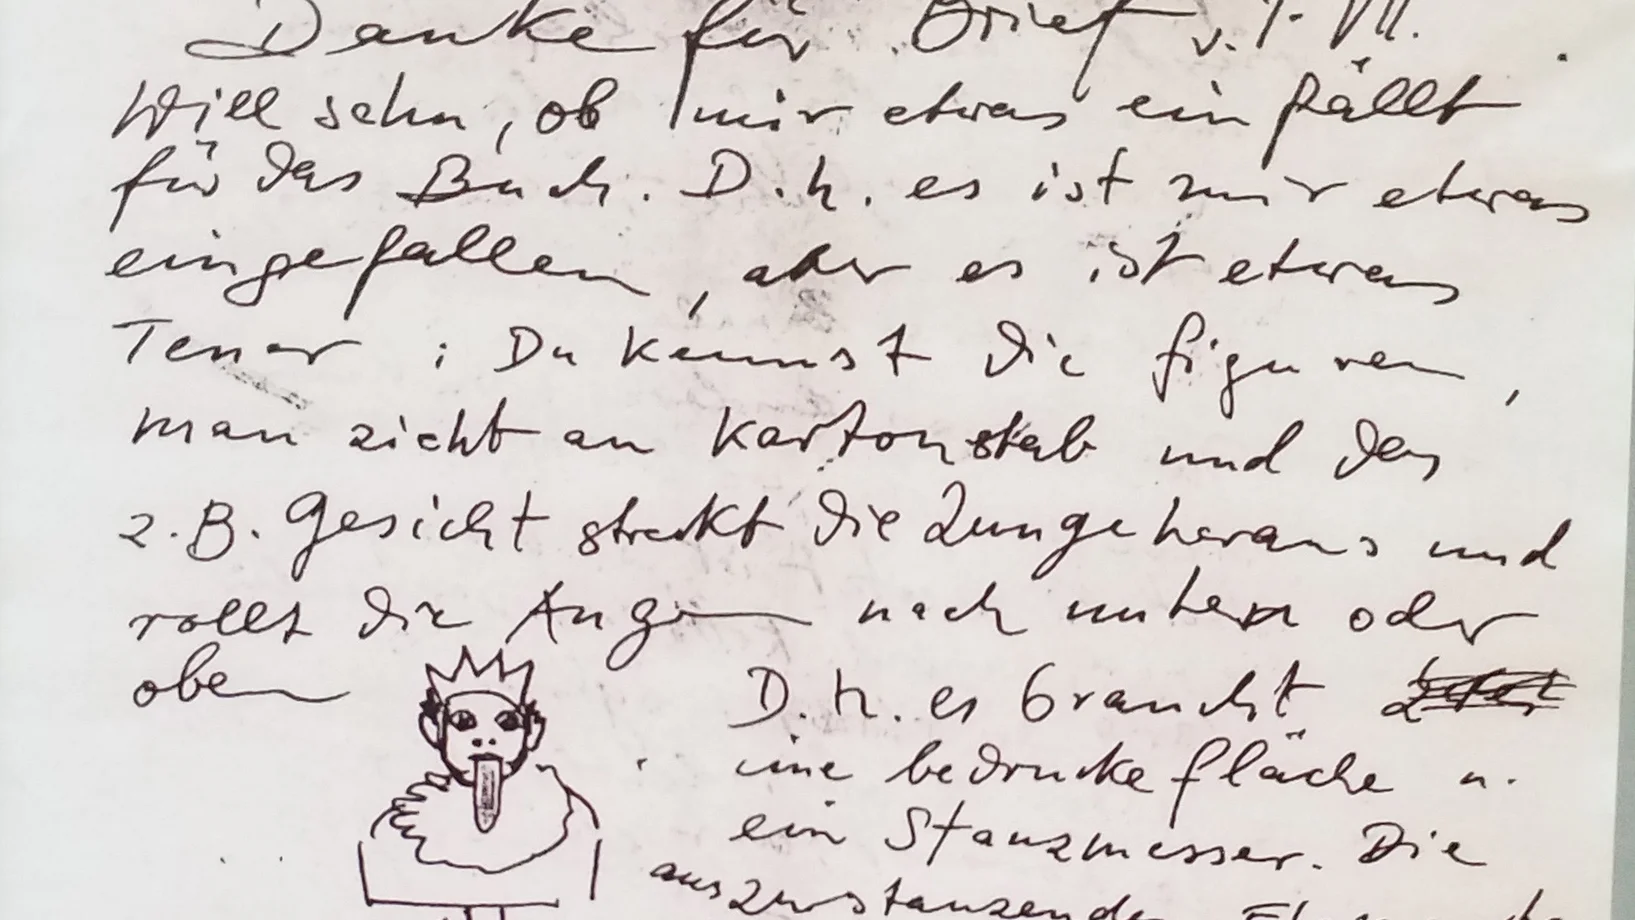 Danke für Brief v. 1. VII.
Will sehn, ob mir etwas einfällt
für das Buch. D.h. es ist mir etwas
eingefallen, aber es ist etwas
Teuer: Du kennst die Figuren,
man zieht an Kartonstab und das
z.B. Gesicht streckt die Zunge heraus und
rollt die Augen nach unten oder
oben
D.h. es braucht
eine bedruckte Fläche u.
ein Stanzmesser. Die
auszustanzenden